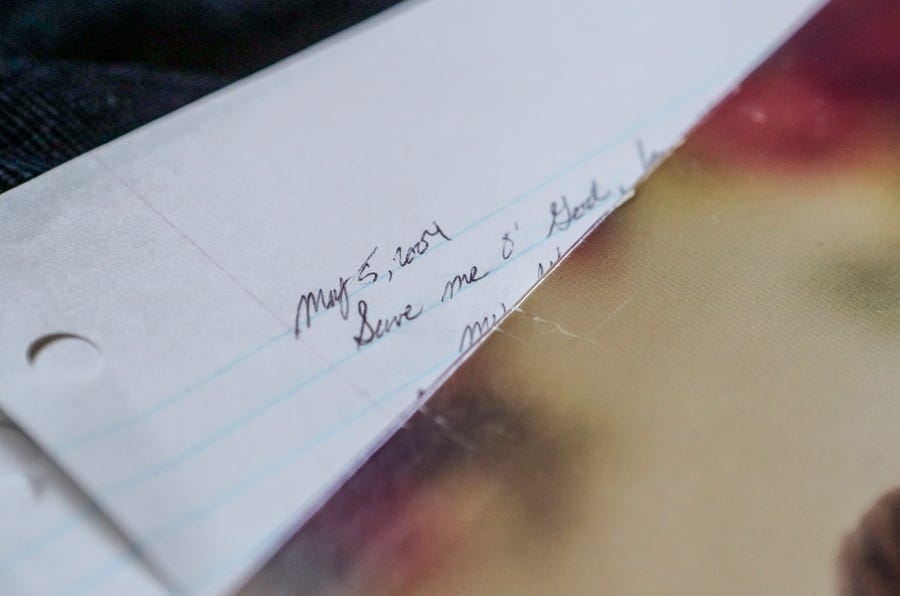 May 5, 2004
Save me O' God,
my